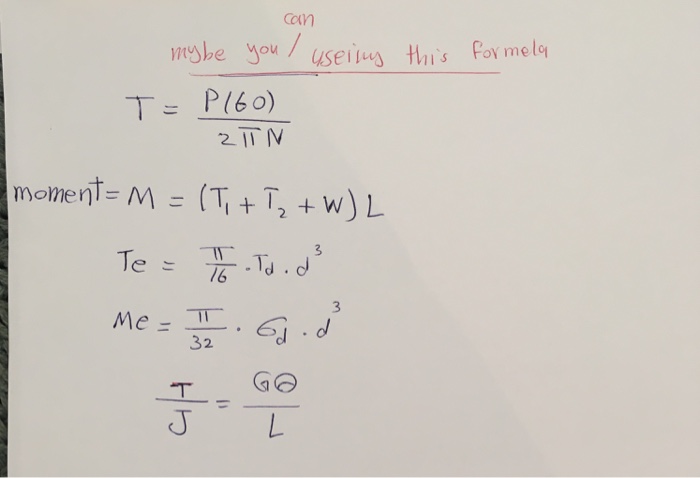 can
mybe you / useiing this formela
T = P(60) / 2πN
moment = M = (T₁ + T₂ + W) L
Te = π/16 . Td . d³
Me = π/32 . σd . d³
T/J = Gθ/L